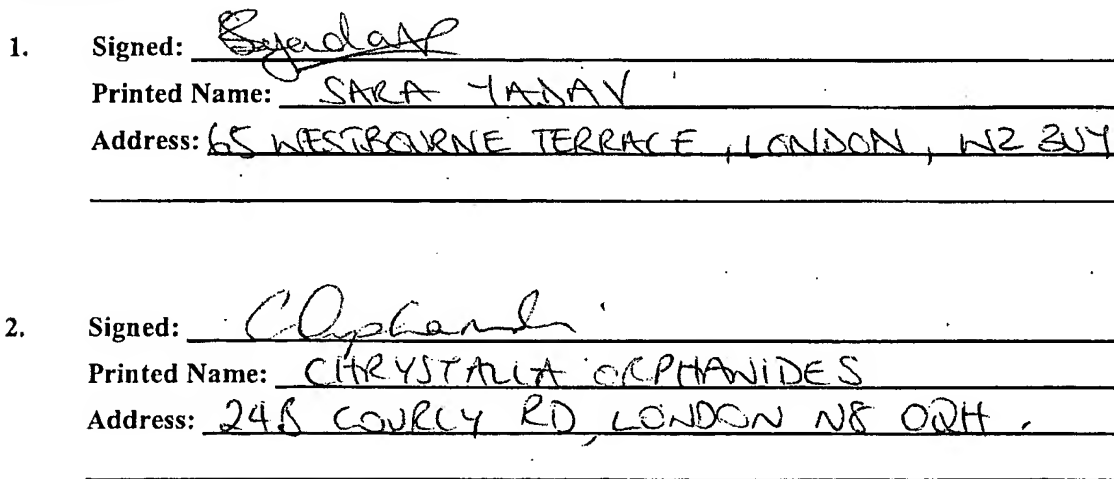 1. Signed:
Printed Name: SARA YADAV
Address: 65 WESTBOURNE TERRACE, LONDON, W2 3UY
2. Signed:
Printed Name: CHRYSTALLA ORPHANIDES
Address: 24B COURCY RD, LONDON N8 0QH.